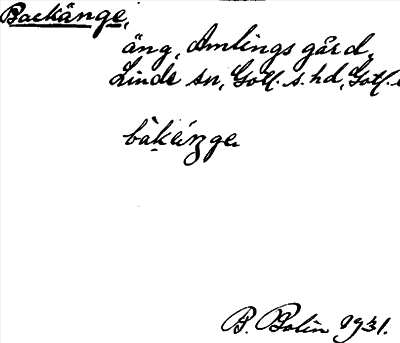 Backänge,
äng, Amlings gård,
Linde sn, Gotl. s. hd, Gotl.
bàkènge
B. Bolin 1931.